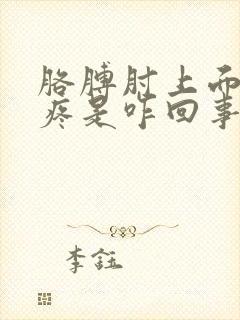 胳膊肘上面
疼是咋回事
李钰